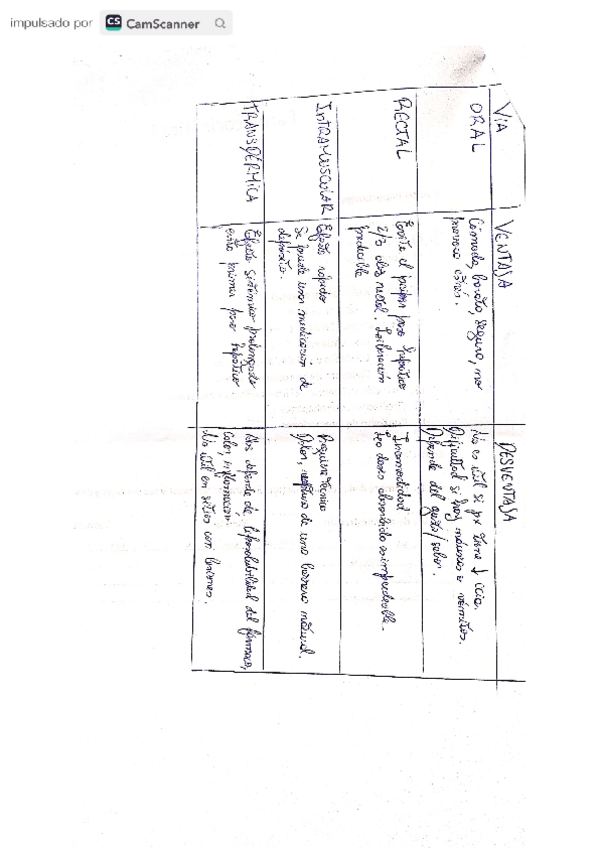 impulsado por CS CamScanner
VÍA VENTAJA DESVENTAJA
ORAL
Cómoda, barata, segura, no
provoca estrés.
No es útil si px tiene ↓ ccia.
Dificultad si hay náuseas o vómitos.
Depende del gusto/sabor.
RECTAL
Evita el primer paso hepático
2/3 dosis rectal. Liberación
predecible
Incomodidad
La dosis absorbida es impredecible.
INTRAMUSCULAR
Efecto rápido
Se puede usar medicación de
depósito.
Requiere técnica
Dolor, ruptura de una barrera natural.
TRANSDÉRMICA
Efecto sistémico prolongado
evita primer paso hepático
Abs depende de liposolubilidad del fármaco,
calor, inflamación.
No útil en sitios con lesiones.